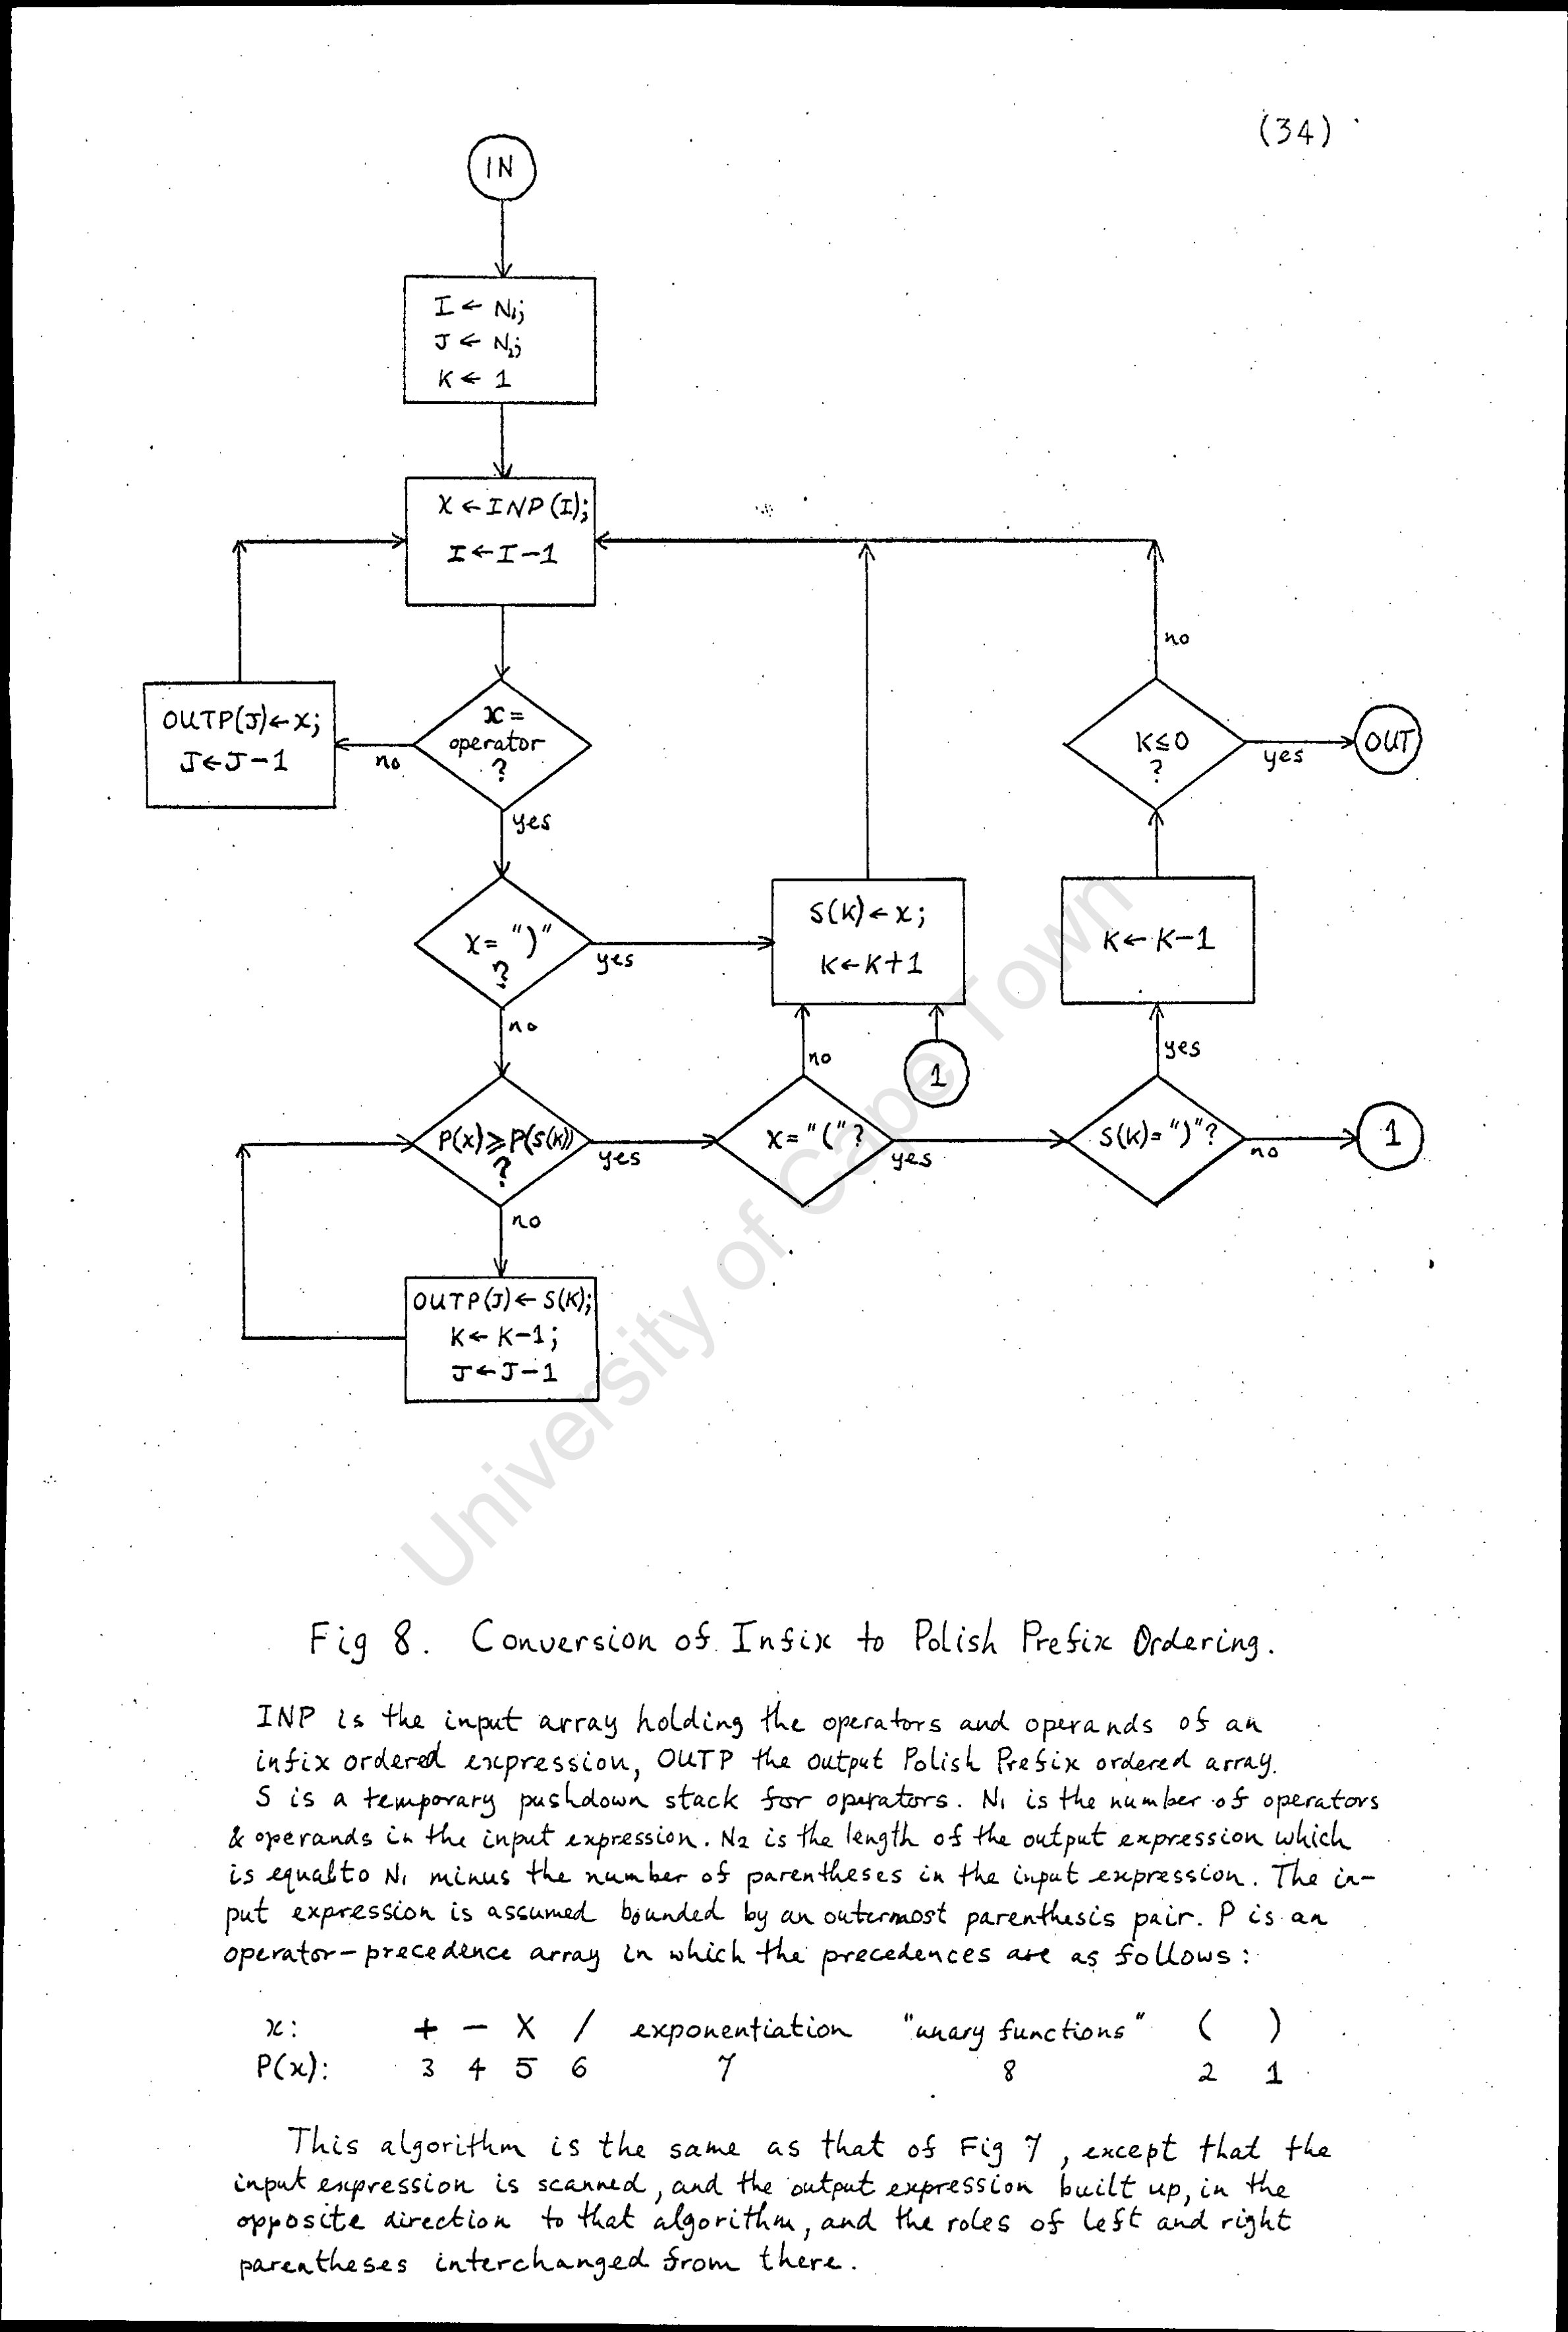 (34)
IN
I ← N₁;
J ← N₂;
K ← 1
X ← INP(I);
I ← I-1
OUTP(J) ← x;
J ← J-1
no
x =
operator
?
yes
no
K ≤ 0
?
yes
OUT
x = ")"
?
yes
no
S(K) ← x;
K ← K+1
K ← K-1
no
1
yes
P(x) ⩾ P(S(K))
?
yes
no
x = "(" ?
yes
S(K) = ")" ?
no
1
OUTP(J) ← S(K);
K ← K-1;
J ← J-1
University of Cape Town
Fig 8. Conversion of Infix to Polish Prefix Ordering.
INP is the input array holding the operators and operands of an
infix ordered expression, OUTP the output Polish Prefix ordered array.
S is a temporary pushdown stack for operators. N₁ is the number of operators
& operands in the input expression. N₂ is the length of the output expression which
is equal to N₁ minus the number of parentheses in the input expression. The in-
put expression is assumed bounded by an outermost parenthesis pair. P is an
operator-precedence array in which the precedences are as follows:
x: + - X / exponentiation "unary functions" ( )
P(x): 3 4 5 6 7 8 2 1
This algorithm is the same as that of Fig 7, except that the
input expression is scanned, and the output expression built up, in the
opposite direction to that algorithm, and the roles of left and right
parentheses interchanged from there.